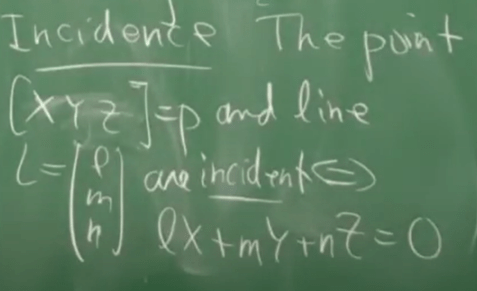 Incidence The point
[X Y Z]=p and line
L=(l m n) are incident ⇔
lX+mY+nZ=0